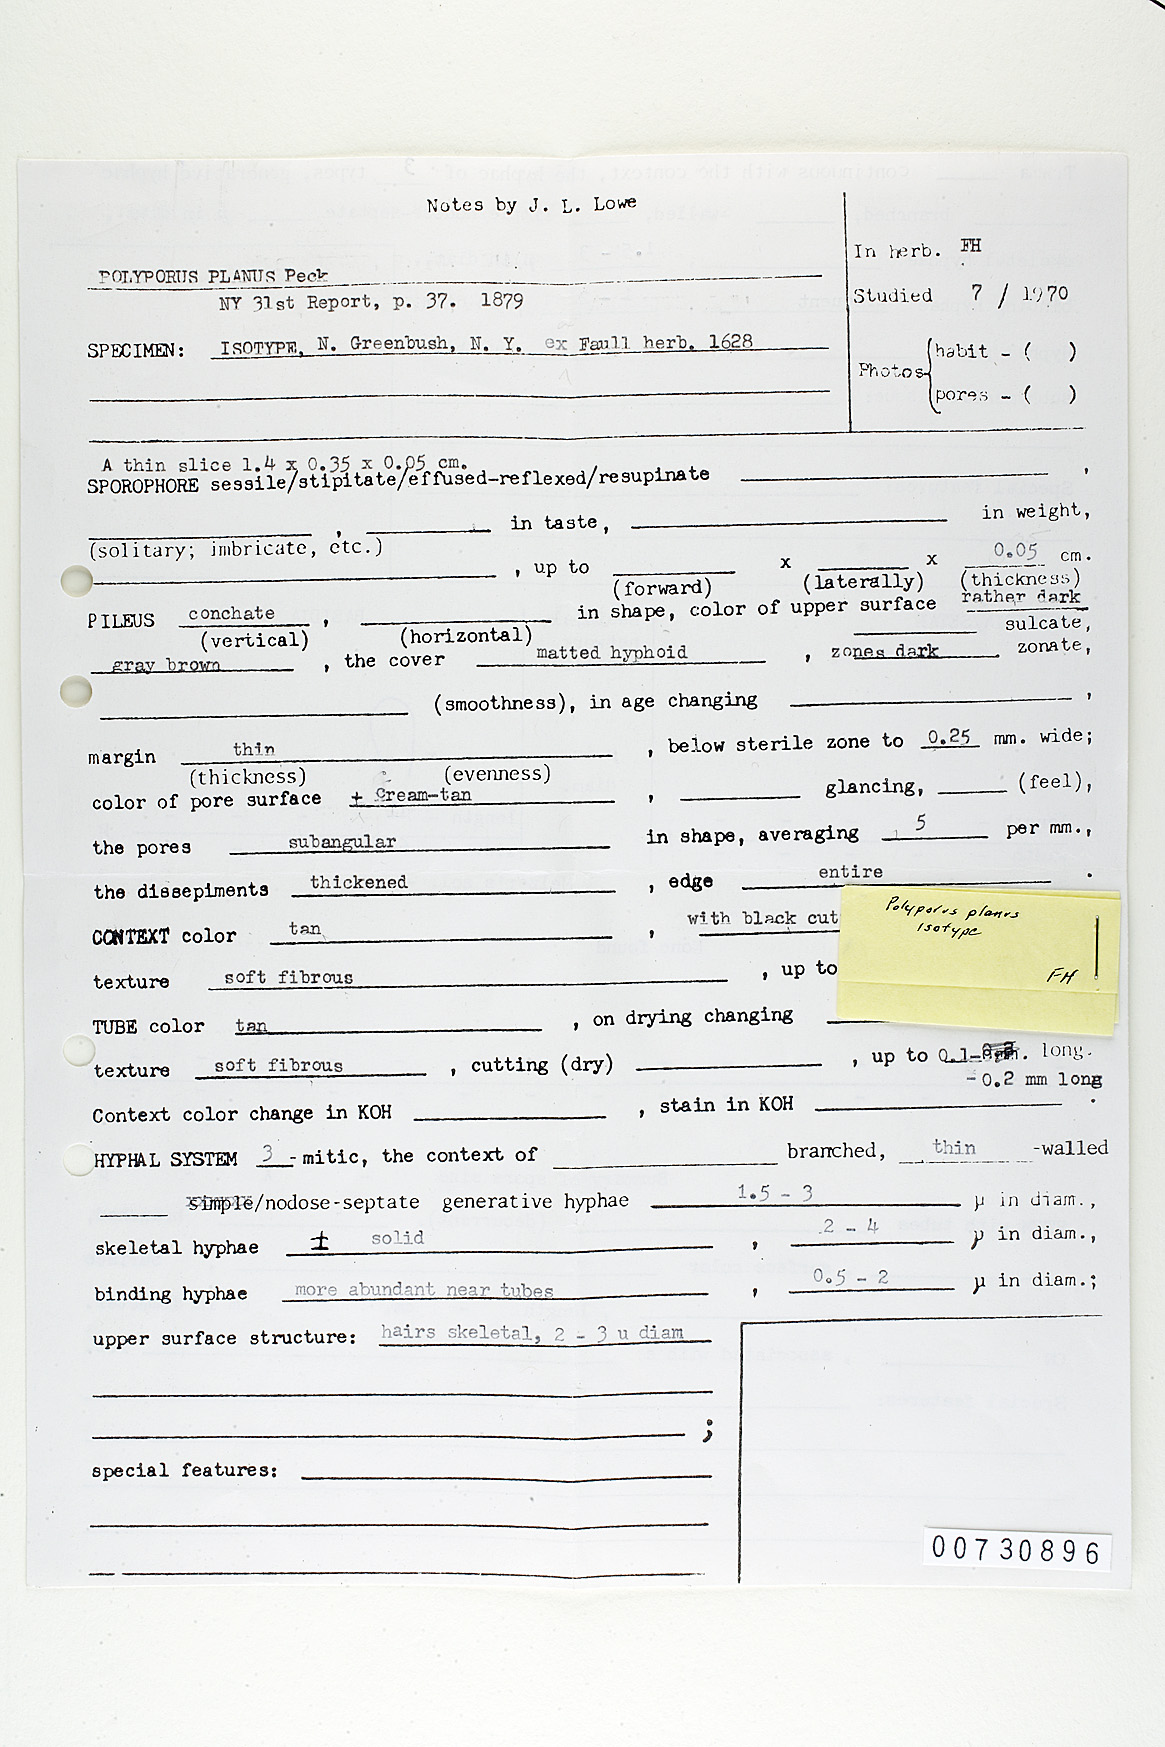 Notes by J. L. Lowe
In herb. FH
POLYPORUS PLANUS Peck
NY 31st Report, p. 37. 1879
Studied 7 / 1970
SPECIMEN: ISOTYPE, N. Greenbush, N. Y. ex Faull herb. 1628
Photos habit - ( )
pores - ( )
A thin slice 1.4 x 0.35 x 0.05 cm.
SPOROPHORE sessile/stipitate/effused-reflexed/resupinate ,
, in taste, in weight,
(solitary; imbricate, etc.)
, up to x x 0.05 cm.
(forward) (laterally) (thickness)
PILEUS conchate , in shape, color of upper surface rather dark
(vertical) (horizontal) sulcate,
gray brown , the cover matted hyphoid , zones dark zonate,
(smoothness), in age changing ,
margin thin , below sterile zone to 0.25 mm. wide;
(thickness) (evenness)
color of pore surface ± cream-tan , glancing, (feel),
the pores subangular in shape, averaging 5 per mm.,
the dissepiments thickened , edge entire .
CONTEXT color tan , with black cut
Polyporus planus
Isotype
FH
texture soft fibrous , up to
TUBE color tan , on drying changing
texture soft fibrous , cutting (dry) , up to 0.1- long.
- 0.2 mm long
Context color change in KOH , stain in KOH .
HYPHAL SYSTEM 3 -mitic, the context of branched, thin -walled
simple/nodose-septate generative hyphae 1.5 - 3 µ in diam.,
skeletal hyphae ± solid , 2 - 4 µ in diam.,
binding hyphae more abundant near tubes , 0.5 - 2 µ in diam.;
upper surface structure: hairs skeletal, 2 - 3 u diam
;
special features:
00730896